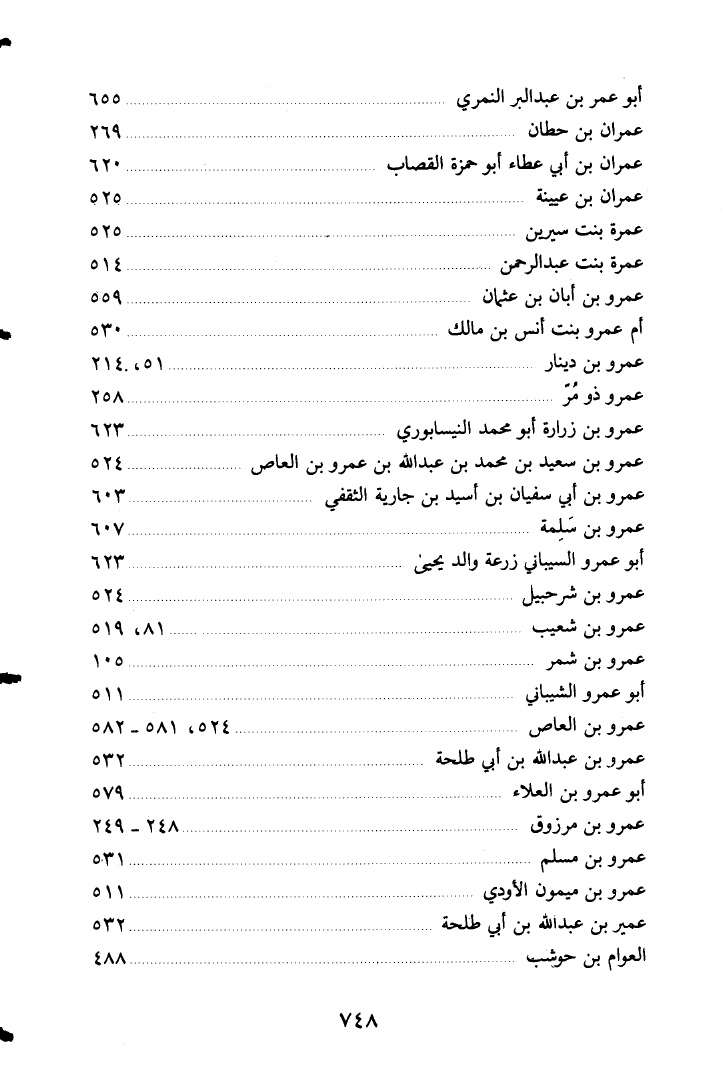 أبو عمر بن عبدالبر النمري ٦٥٥
عمران بن حطان ٢٦٩
عمران بن أبي عطاء أبو حمزة القصاب ٦٢٠
عمران بن عيينة ٥٢٥
عمرة بنت سيرين ٥٢٥
عمرة بنت عبدالرحمن ٥١٤
عمرو بن أبان بن عثمان ٥٥٩
أم عمرو بنت أنس بن مالك ٥٣٠
عمرو بن دينار ٥١، ٢١٤
عمرو ذو مُرّ ٢٥٨
عمرو بن زرارة أبو محمد النيسابوري ٦٢٣
عمرو بن سعيد بن محمد بن عبدالله بن عمرو بن العاص ٥٢٤
عمرو بن أبي سفيان بن أسيد بن جارية الثقفي ٦٠٣
عمرو بن سَلِمة ٦٠٧
أبو عمرو السيباني زرعة والد يحيىٰ ٦٢٣
عمرو بن شرحبيل ٥٢٤
عمرو بن شعيب ٨١، ٥١٩
عمرو بن شمر ١٠٥
أبو عمرو الشيباني ٥١١
عمرو بن العاص ٥٢٤، ٥٨١ ـ ٥٨٢
عمرو بن عبدالله بن أبي طلحة ٥٣٢
أبو عمرو بن العلاء ٥٧٩
عمرو بن مرزوق ٢٤٨ ـ ٢٤٩
عمرو بن مسلم ٥٣١
عمرو بن ميمون الأودي ٥١١
عمير بن عبدالله بن أبي طلحة ٥٣٢
العوام بن حوشب ٤٨٨
٧٤٨